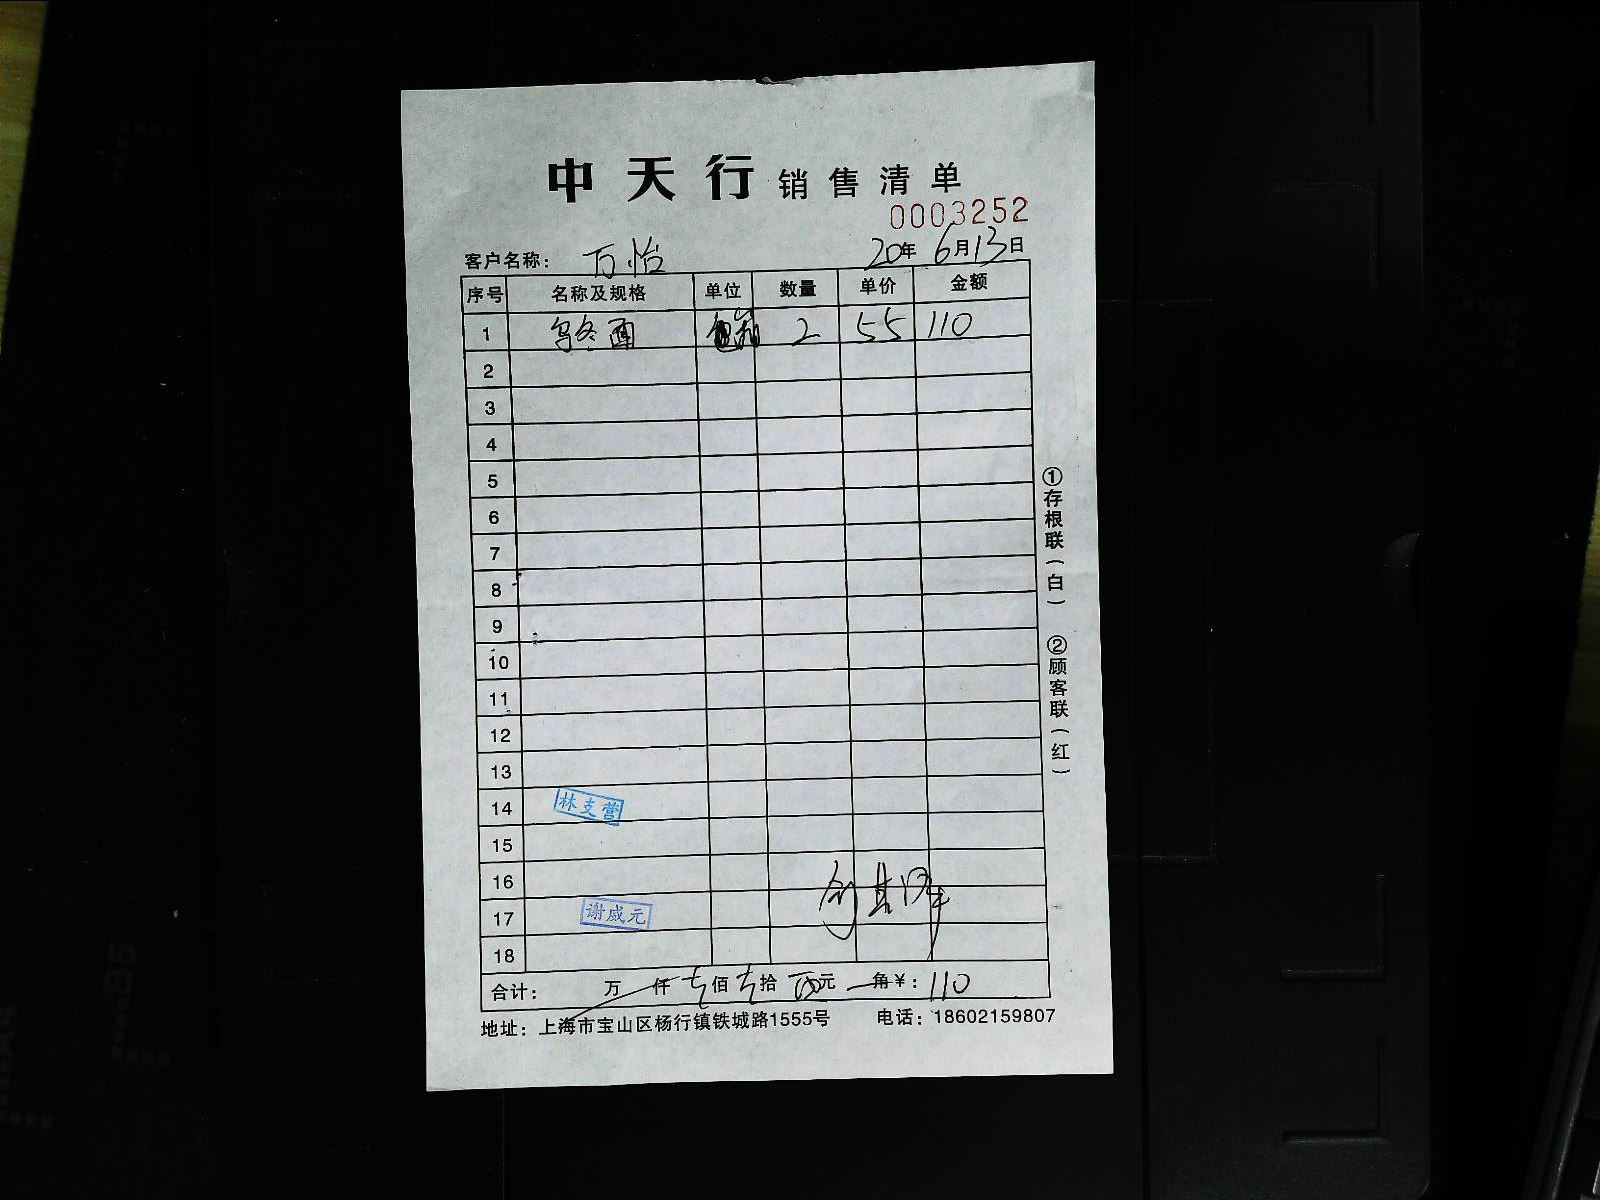 中天行 销售清单
0003252
客户名称: 万怡 20年6月13日
序号 名称及规格 单位 数量 单价 金额
1 乌冬面 箱 2 55 110
2
3
4
5
6
7
8
9
10
11
12
13
14 林支营
15
16
17 谢咸元
18
合计: 万 仟 佰 拾 元 角 ¥: 110
地址: 上海市宝山区杨行镇铁城路1555号 电话: 18602159807
①存根联(白) ②顾客联(红)